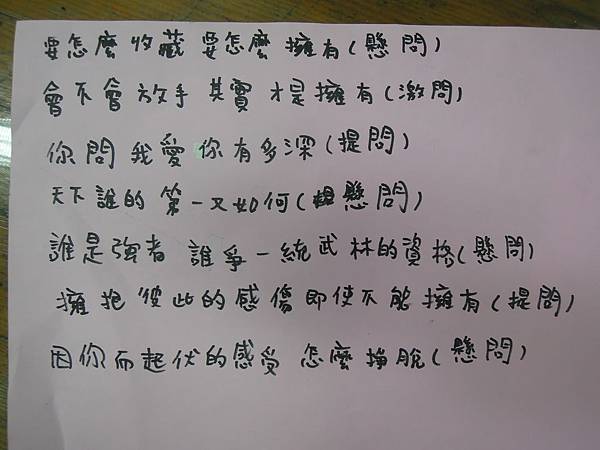 要怎麼收藏 要怎麼擁有(懸問)
會不會放手 其實才是擁有(激問)
你問我愛你有多深(提問)
天下誰的第一又如何(懸問)
誰是強者 誰爭一統武林的資格(懸問)
擁抱彼此的感傷即使不能擁有(提問)
因你而起伏的感受 怎麼掙脫(懸問)